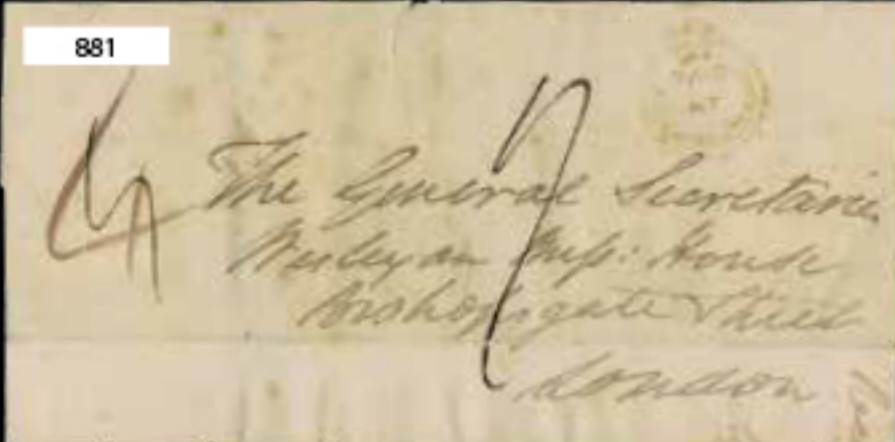 881
4
7
The General Secretaries
Wesleyan Miss: House
Bishopsgate Street
London